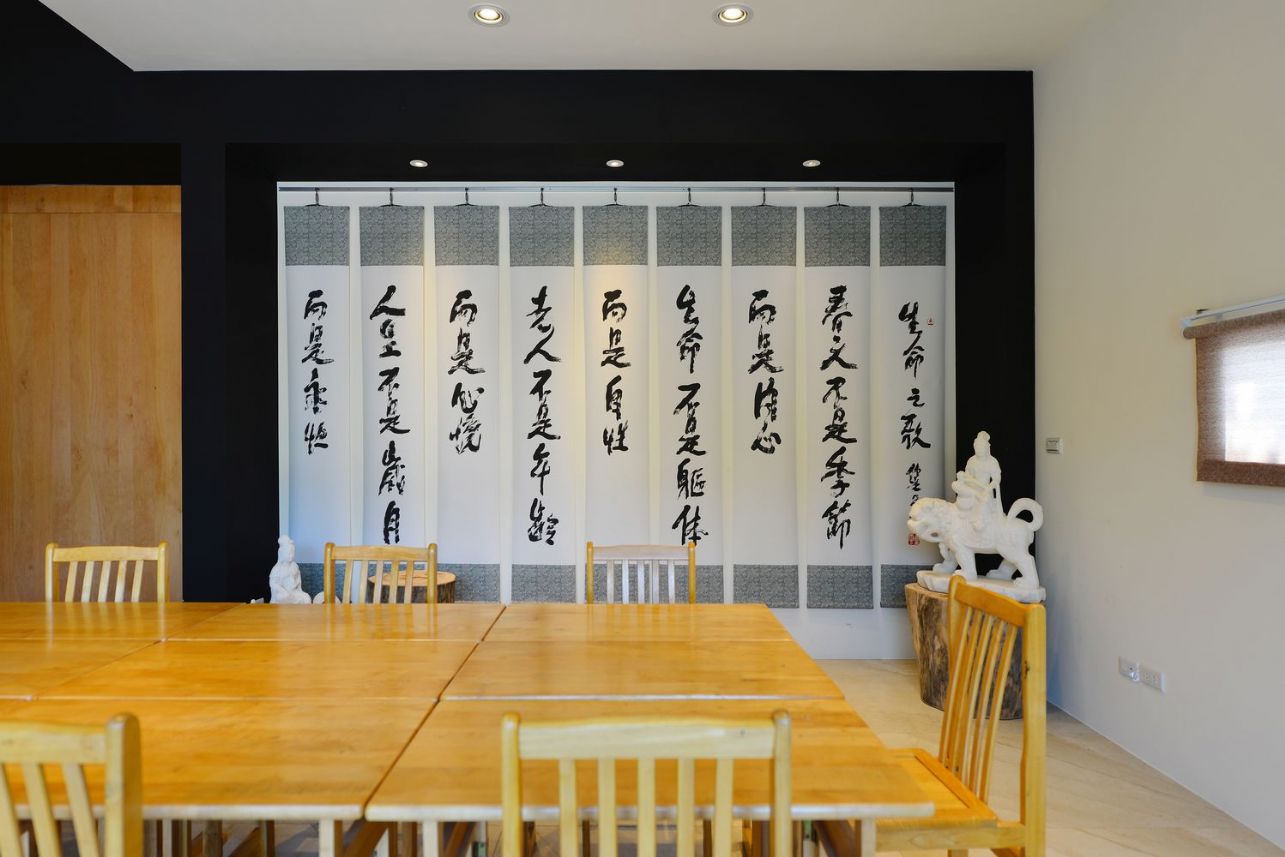 生命之歌
春天不是季節
而是心
生命不是軀体
而是自性
老人不是年齡
而是心
人生不是歲月
而是永恆